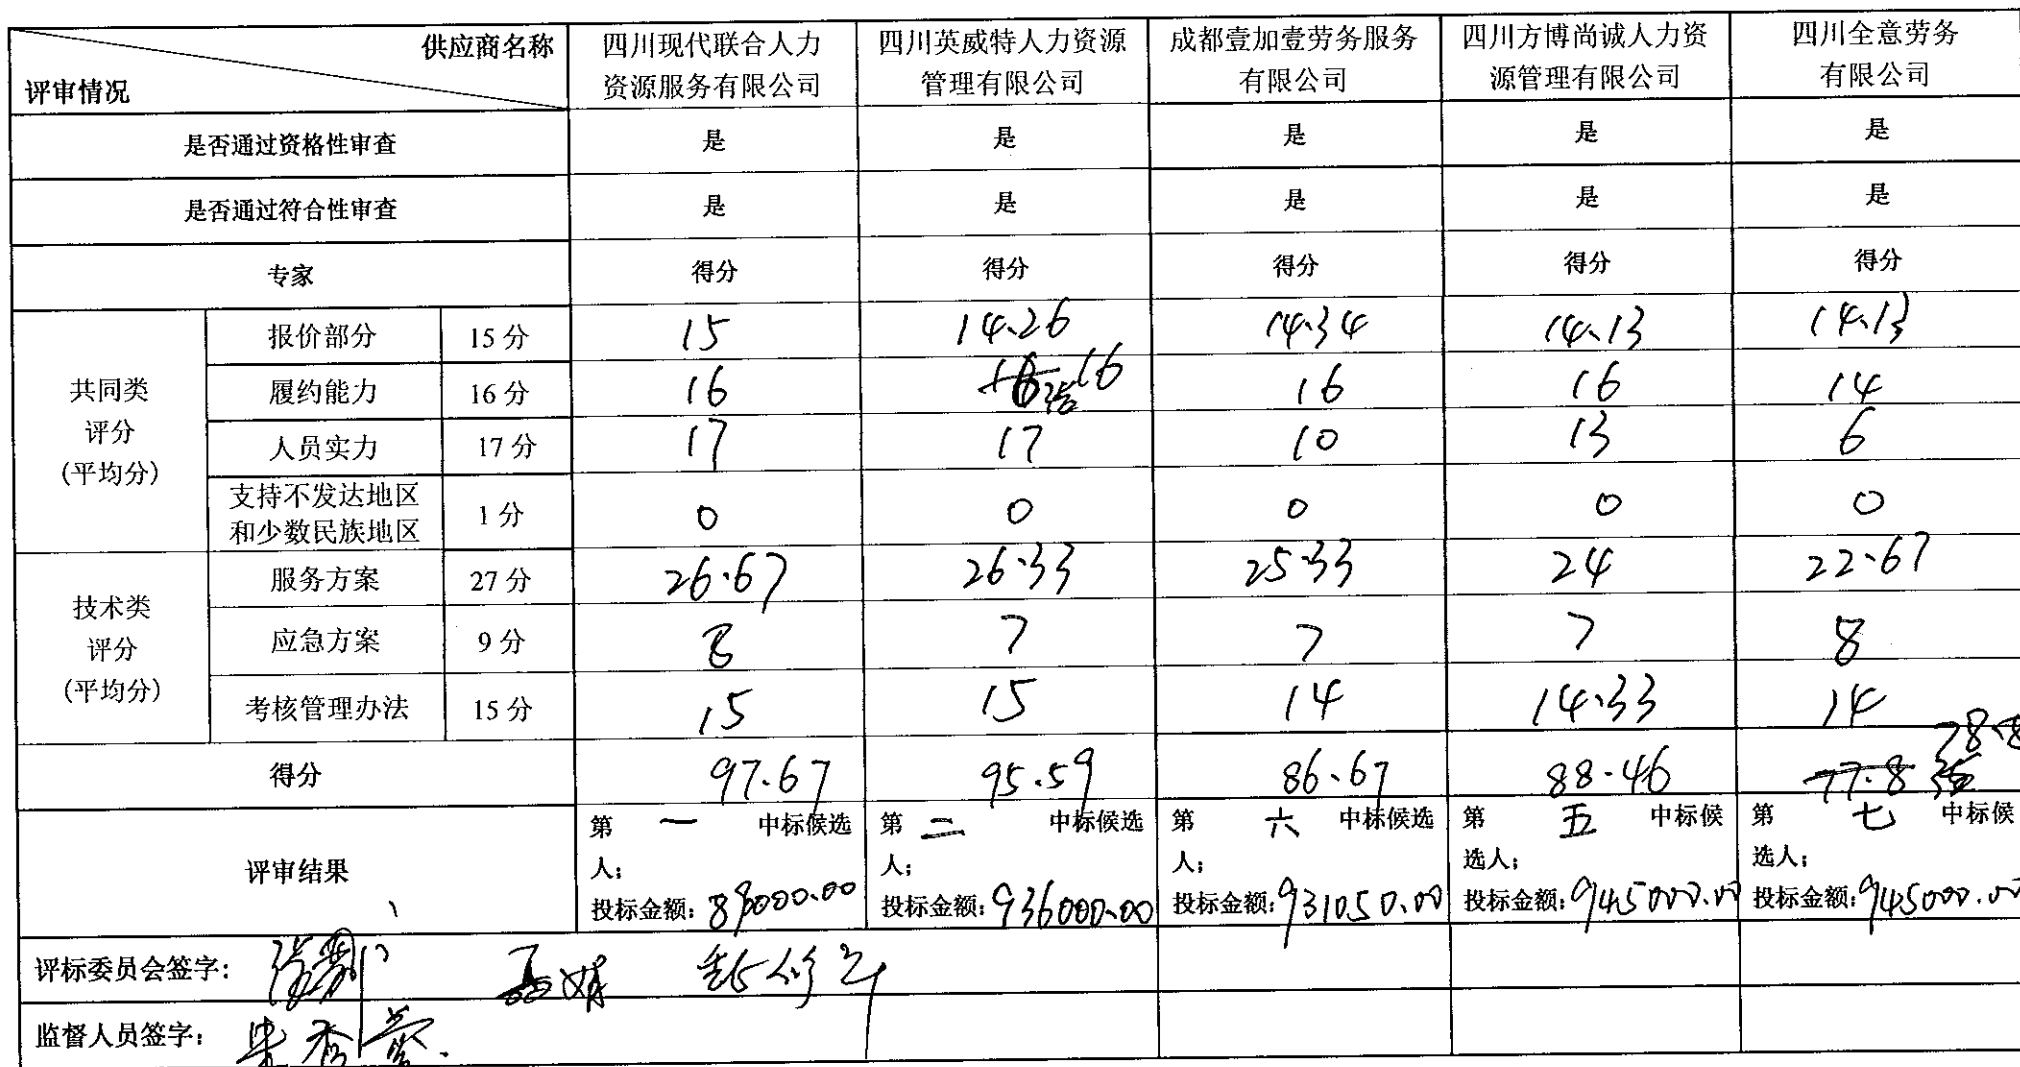 供应商名称
评审情况
四川现代联合人力
资源服务有限公司
四川英威特人力资源
管理有限公司
成都壹加壹劳务服务
有限公司
四川方博尚诚人力资
源管理有限公司
四川全意劳务
有限公司
是否通过资格性审查 是 是 是 是 是
是否通过符合性审查 是 是 是 是 是
专家 得分 得分 得分 得分 得分
共同类
评分
(平均分)
报价部分 15分 15 14.26 14.34 14.13 14.13
履约能力 16分 16 16 16 16 14
人员实力 17分 17 17 10 13 6
支持不发达地区
和少数民族地区
1分 0 0 0 0 0
技术类
评分
(平均分)
服务方案 27分 26.67 26.33 25.33 24 22.67
应急方案 9分 8 7 7 7 8
考核管理办法 15分 15 15 14 14.33 14
得分 97.67 95.59 86.67 88.46 77.8 78.8
评审结果
第 一 中标候选
人;
投标金额:
第 二 中标候选
人;
投标金额: 936000.00
第 六 中标候选
人;
投标金额: 931050.00
第 五 中标候
选人;
投标金额: 945000.00
第 七 中标候
选人;
投标金额: 945000.00
评标委员会签字:
监督人员签字: